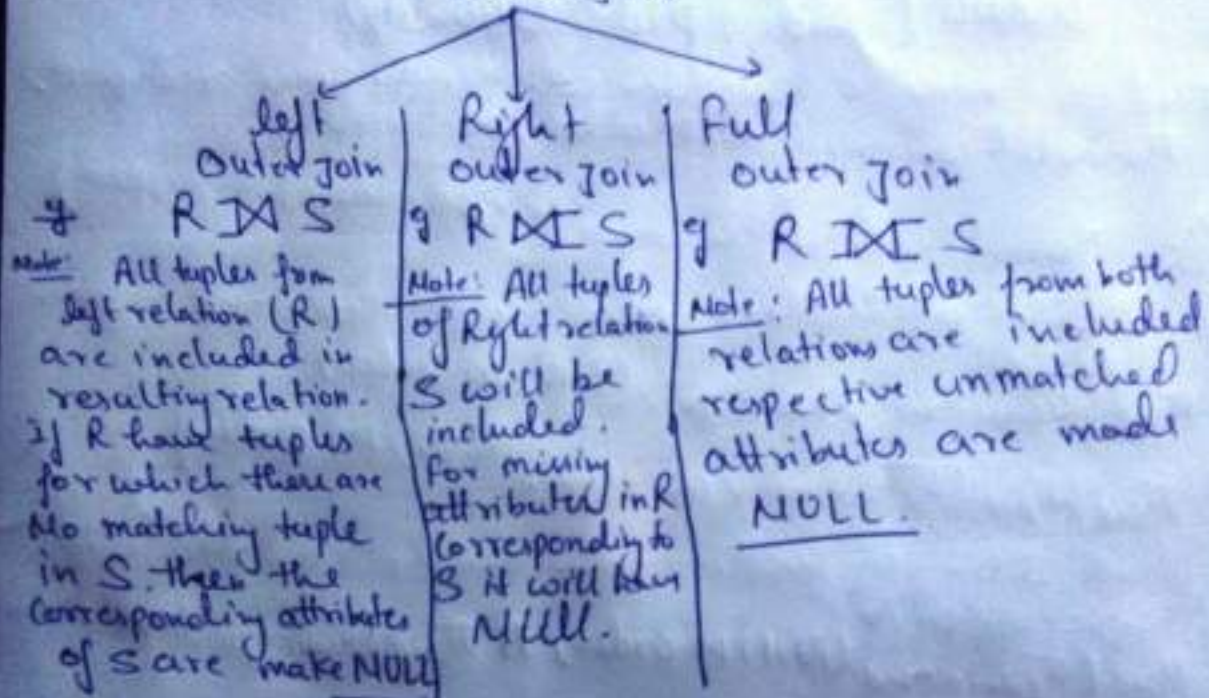 left
Outer Join
eg R ⟕ S
Note: All tuples from
left relation (R)
are included in
resulting relation.
If R have tuples
for which there are
No matching tuple
in S. then the
Corresponding attributes
of S are make NULL
Right
outer Join
eg R ⟖ S
Note: All tuples
of Right relation
S will be
included.
For missing
attributes in R
Corresponding to
S it will have
NULL.
Full
outer Join
eg R ⟗ S
Note: All tuples from both
relations are included
respective unmatched
attributes are made
NULL.